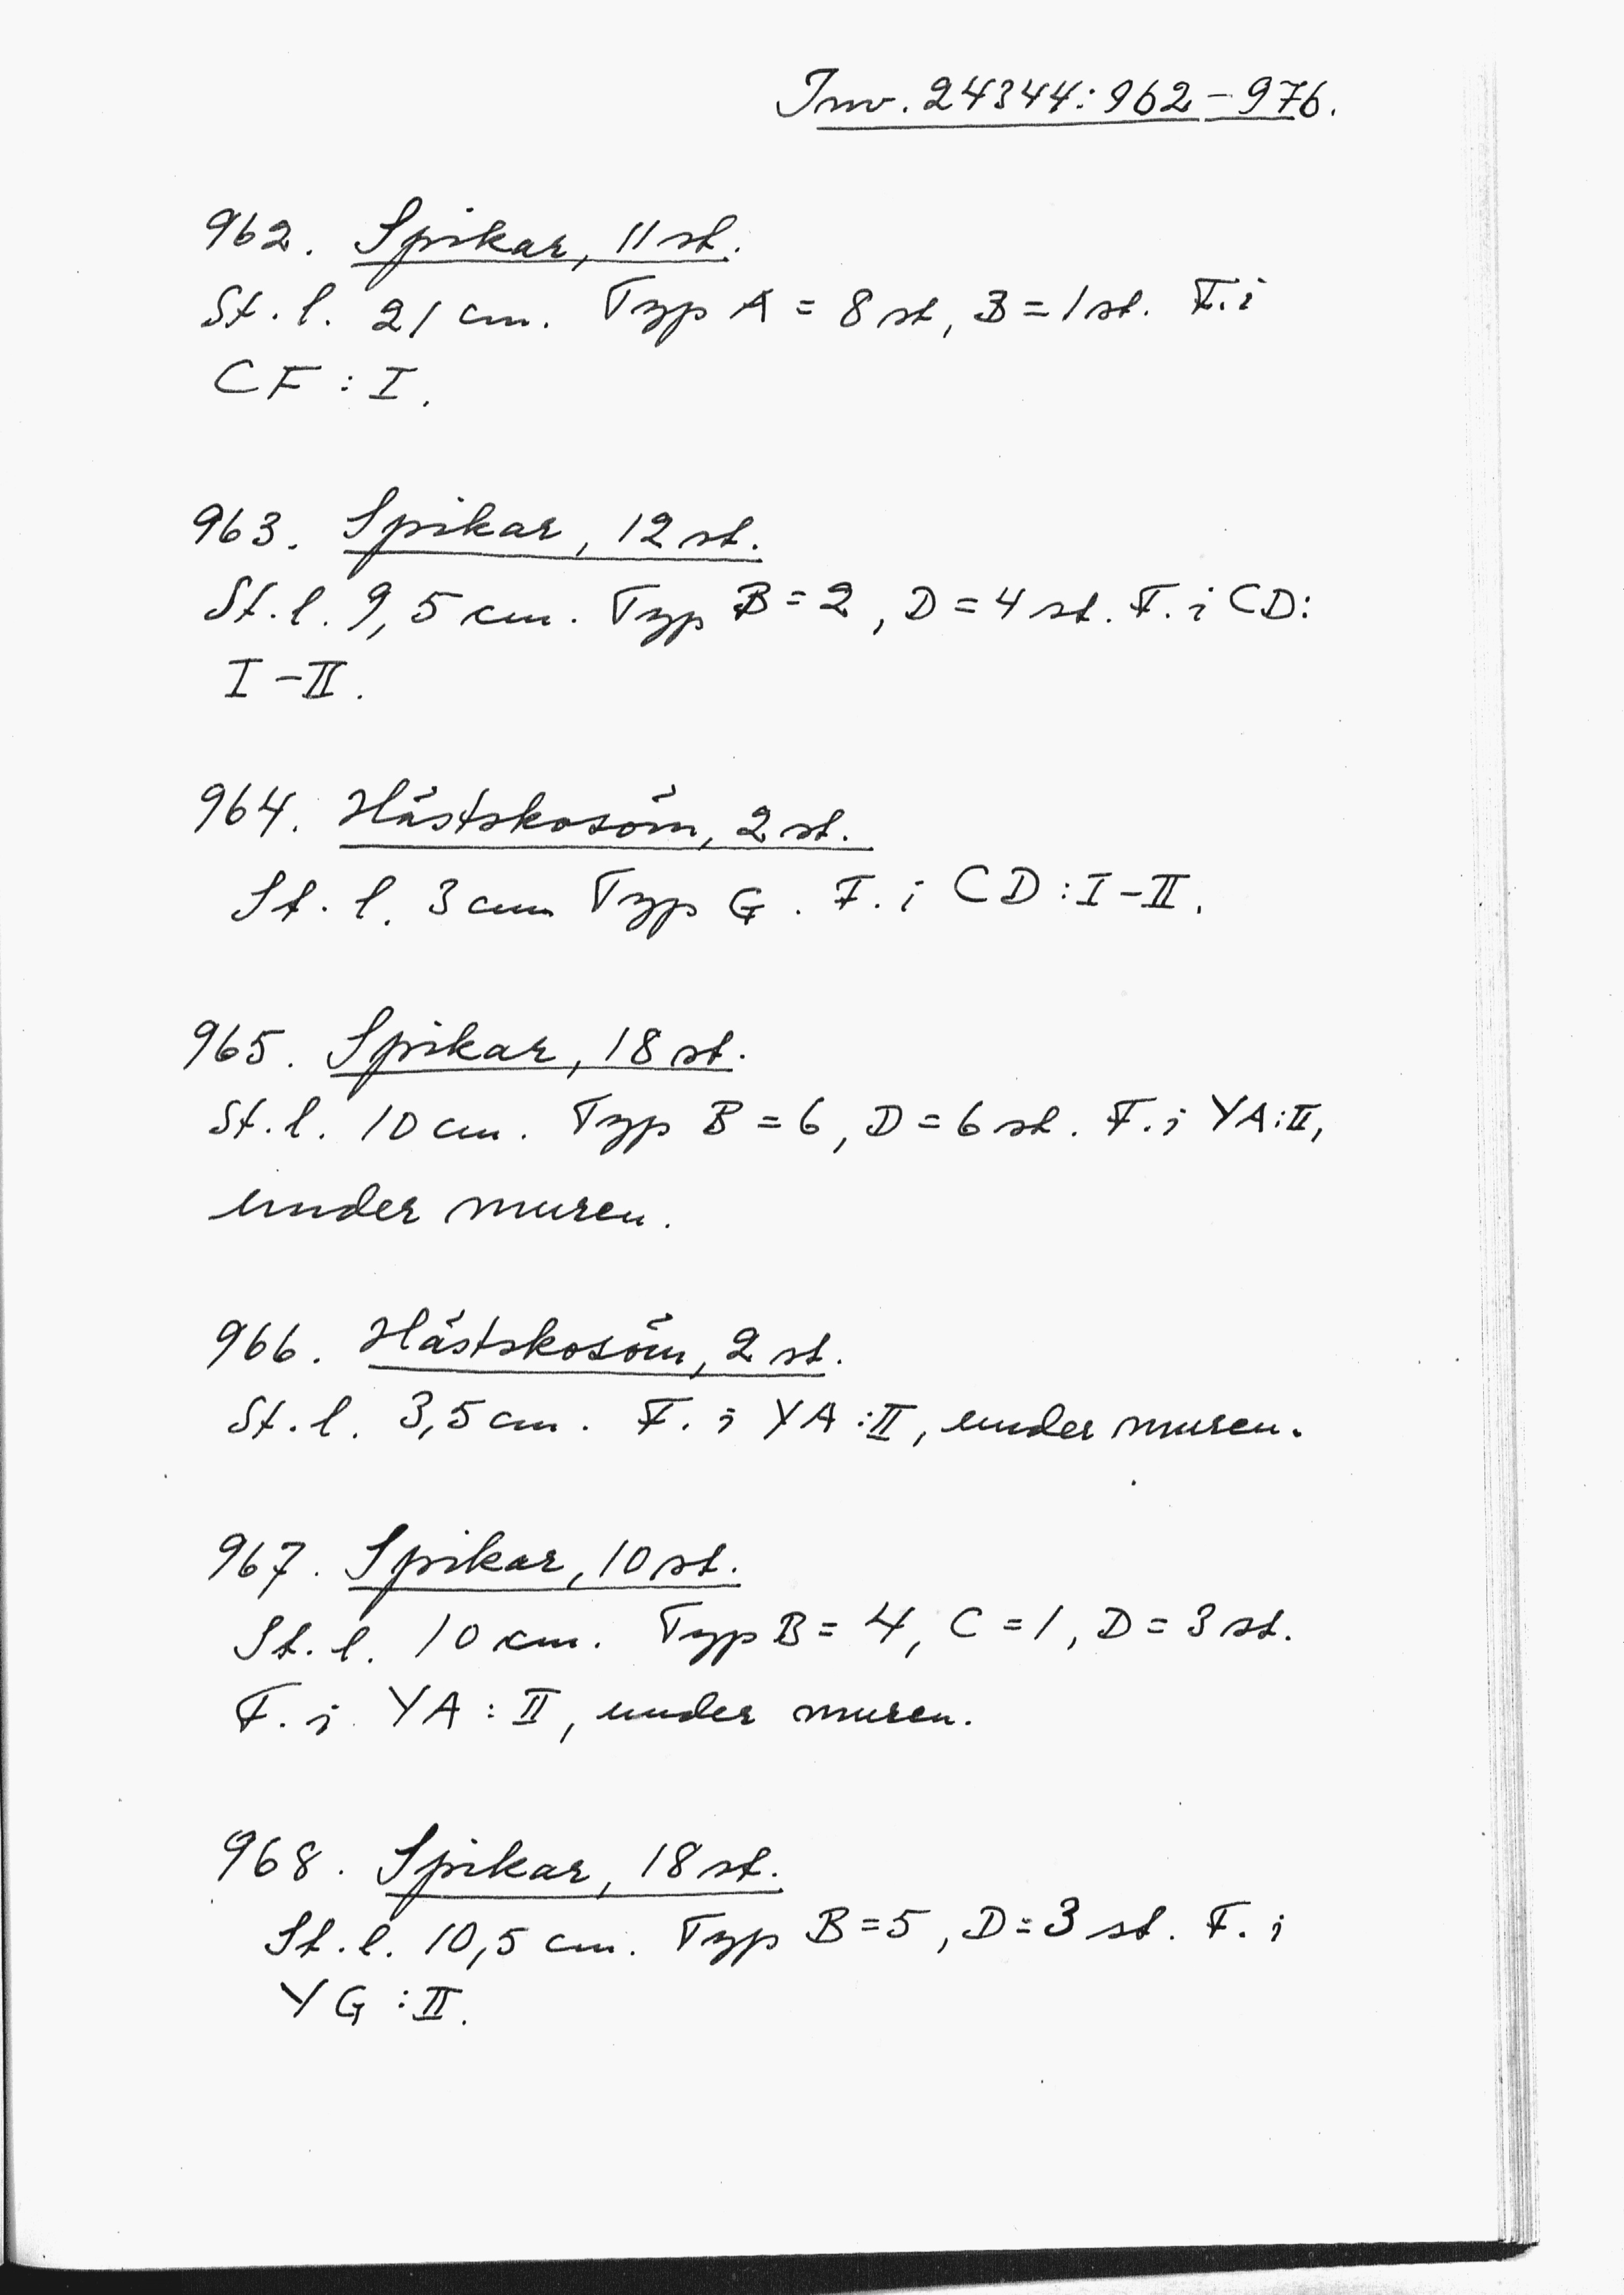 Inv. 24344:962-976.
962. Spikar, 11 st.
St. l. 21 cm. Typ A = 8 st, B = 1 st. F. i
CF : I.
963. Spikar, 12 st.
St. l. 9,5 cm. Typ B = 2, D = 4 st. F. i CD:
I-II.
964. Hästskosöm, 2 st.
St. l. 3 cm Typ G. F. i CD : I-II.
965. Spikar, 18 st.
St. l. 10 cm. Typ B = 6, D = 6 st. F. i YA:II,
under muren.
966. Hästskosöm, 2 st.
St. l. 3,5 cm. F. i YA :II, under muren.
967. Spikar, 10 st.
St. l. 10 cm. Typ B = 4, C = 1, D = 3 st.
F. i YA : II, under muren.
968. Spikar, 18 st.
St. l. 10,5 cm. Typ B = 5, D = 3 st. F. i
YG : II.